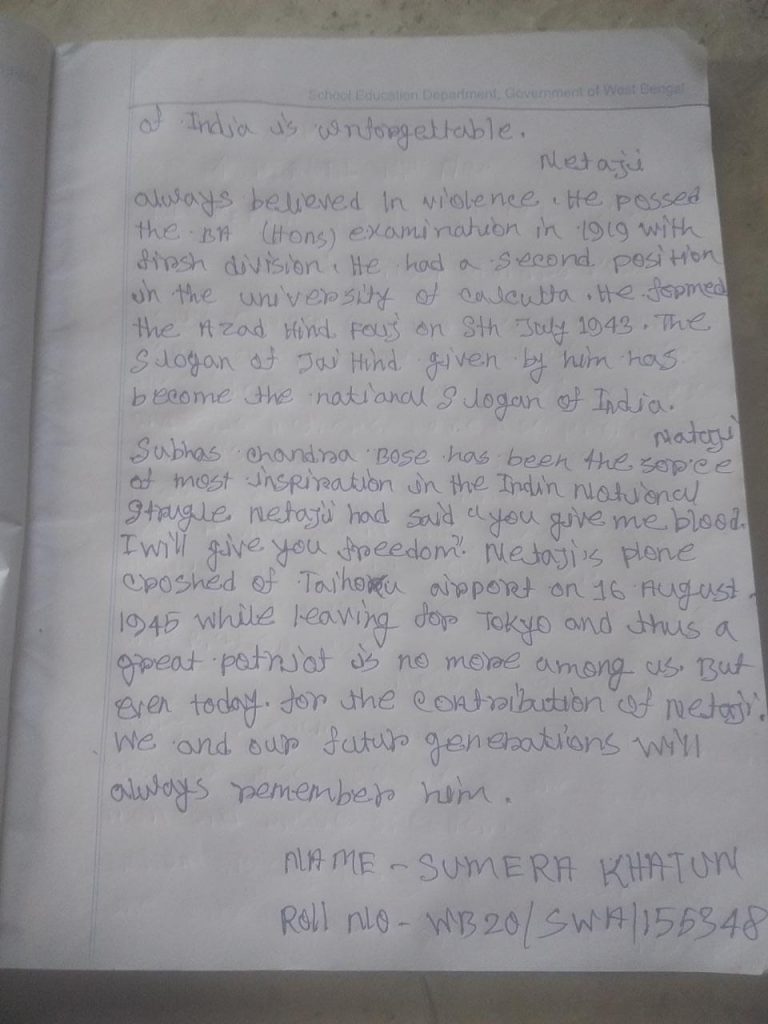 School Education Department, Government of West Bengal
of India is unforgettable.
Netaji
always believed in violence. He possed
the BA (Hons) examination in 1919 with
firsh division. He had a second position
in the university of calcutta. He formed
the Azad Hind Fouj on 5th July 1943. The
Slogan of Jai Hind given by him has
become the national Slogan of India.
Natogi
Subhas chandra Bose has been the sorce
of most inspiration in the Indin National
Strugle. Netaji had said "you give me blood.
I will give you freedom". Netaji's plone
croshed of Taihoku airport on 16 August.
1945 while leaving for Tokyo and thus a
great patriot is no more among us. But
even today. for the contribution of Netaji.
We and our futur generations will
always remember him.
NAME - SUMERA KHATUN
Roll No - WB20/SWA/155348